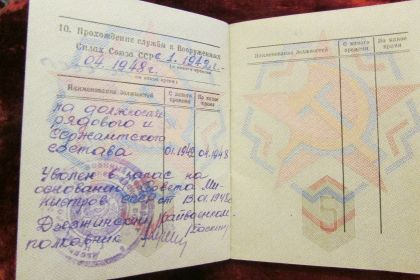 10. Прохождение службы в Вооруженных
Силах Союза ССР с 1. 1942г.
04.1948г.
(по какое время)
Наименование должностей С какого времени По какое время
на должностях
рядового и
сержантского
состава 01.1942 04.1948
Уволен в запас на
основании Совета Ми-
нистров СССР от 13.01.1948г.
Дзержинский райвоенком
полковник
Наименование должностей С какого времени По какое время
5